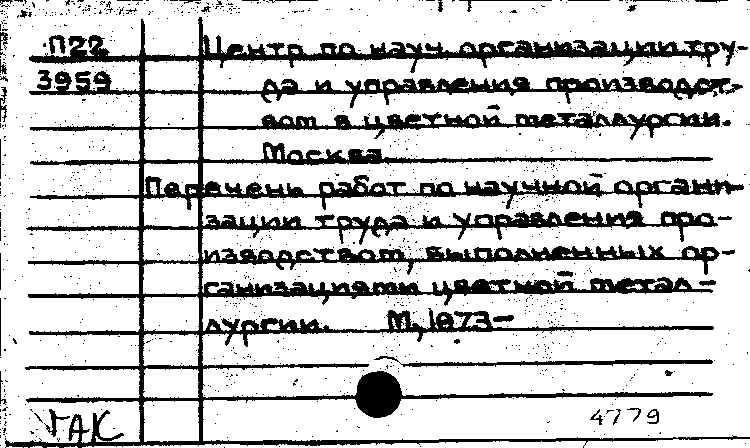 П22 Центр по науч. организации тру-
3959 да и управления производст-
вом в цветной металлургии.
Москва.
Перечень работ по научной органи-
зации труда и управления про-
изводством, выполненных ор-
ганизациями цветной метал-
лургии. М., 1973-
ГАК 4779